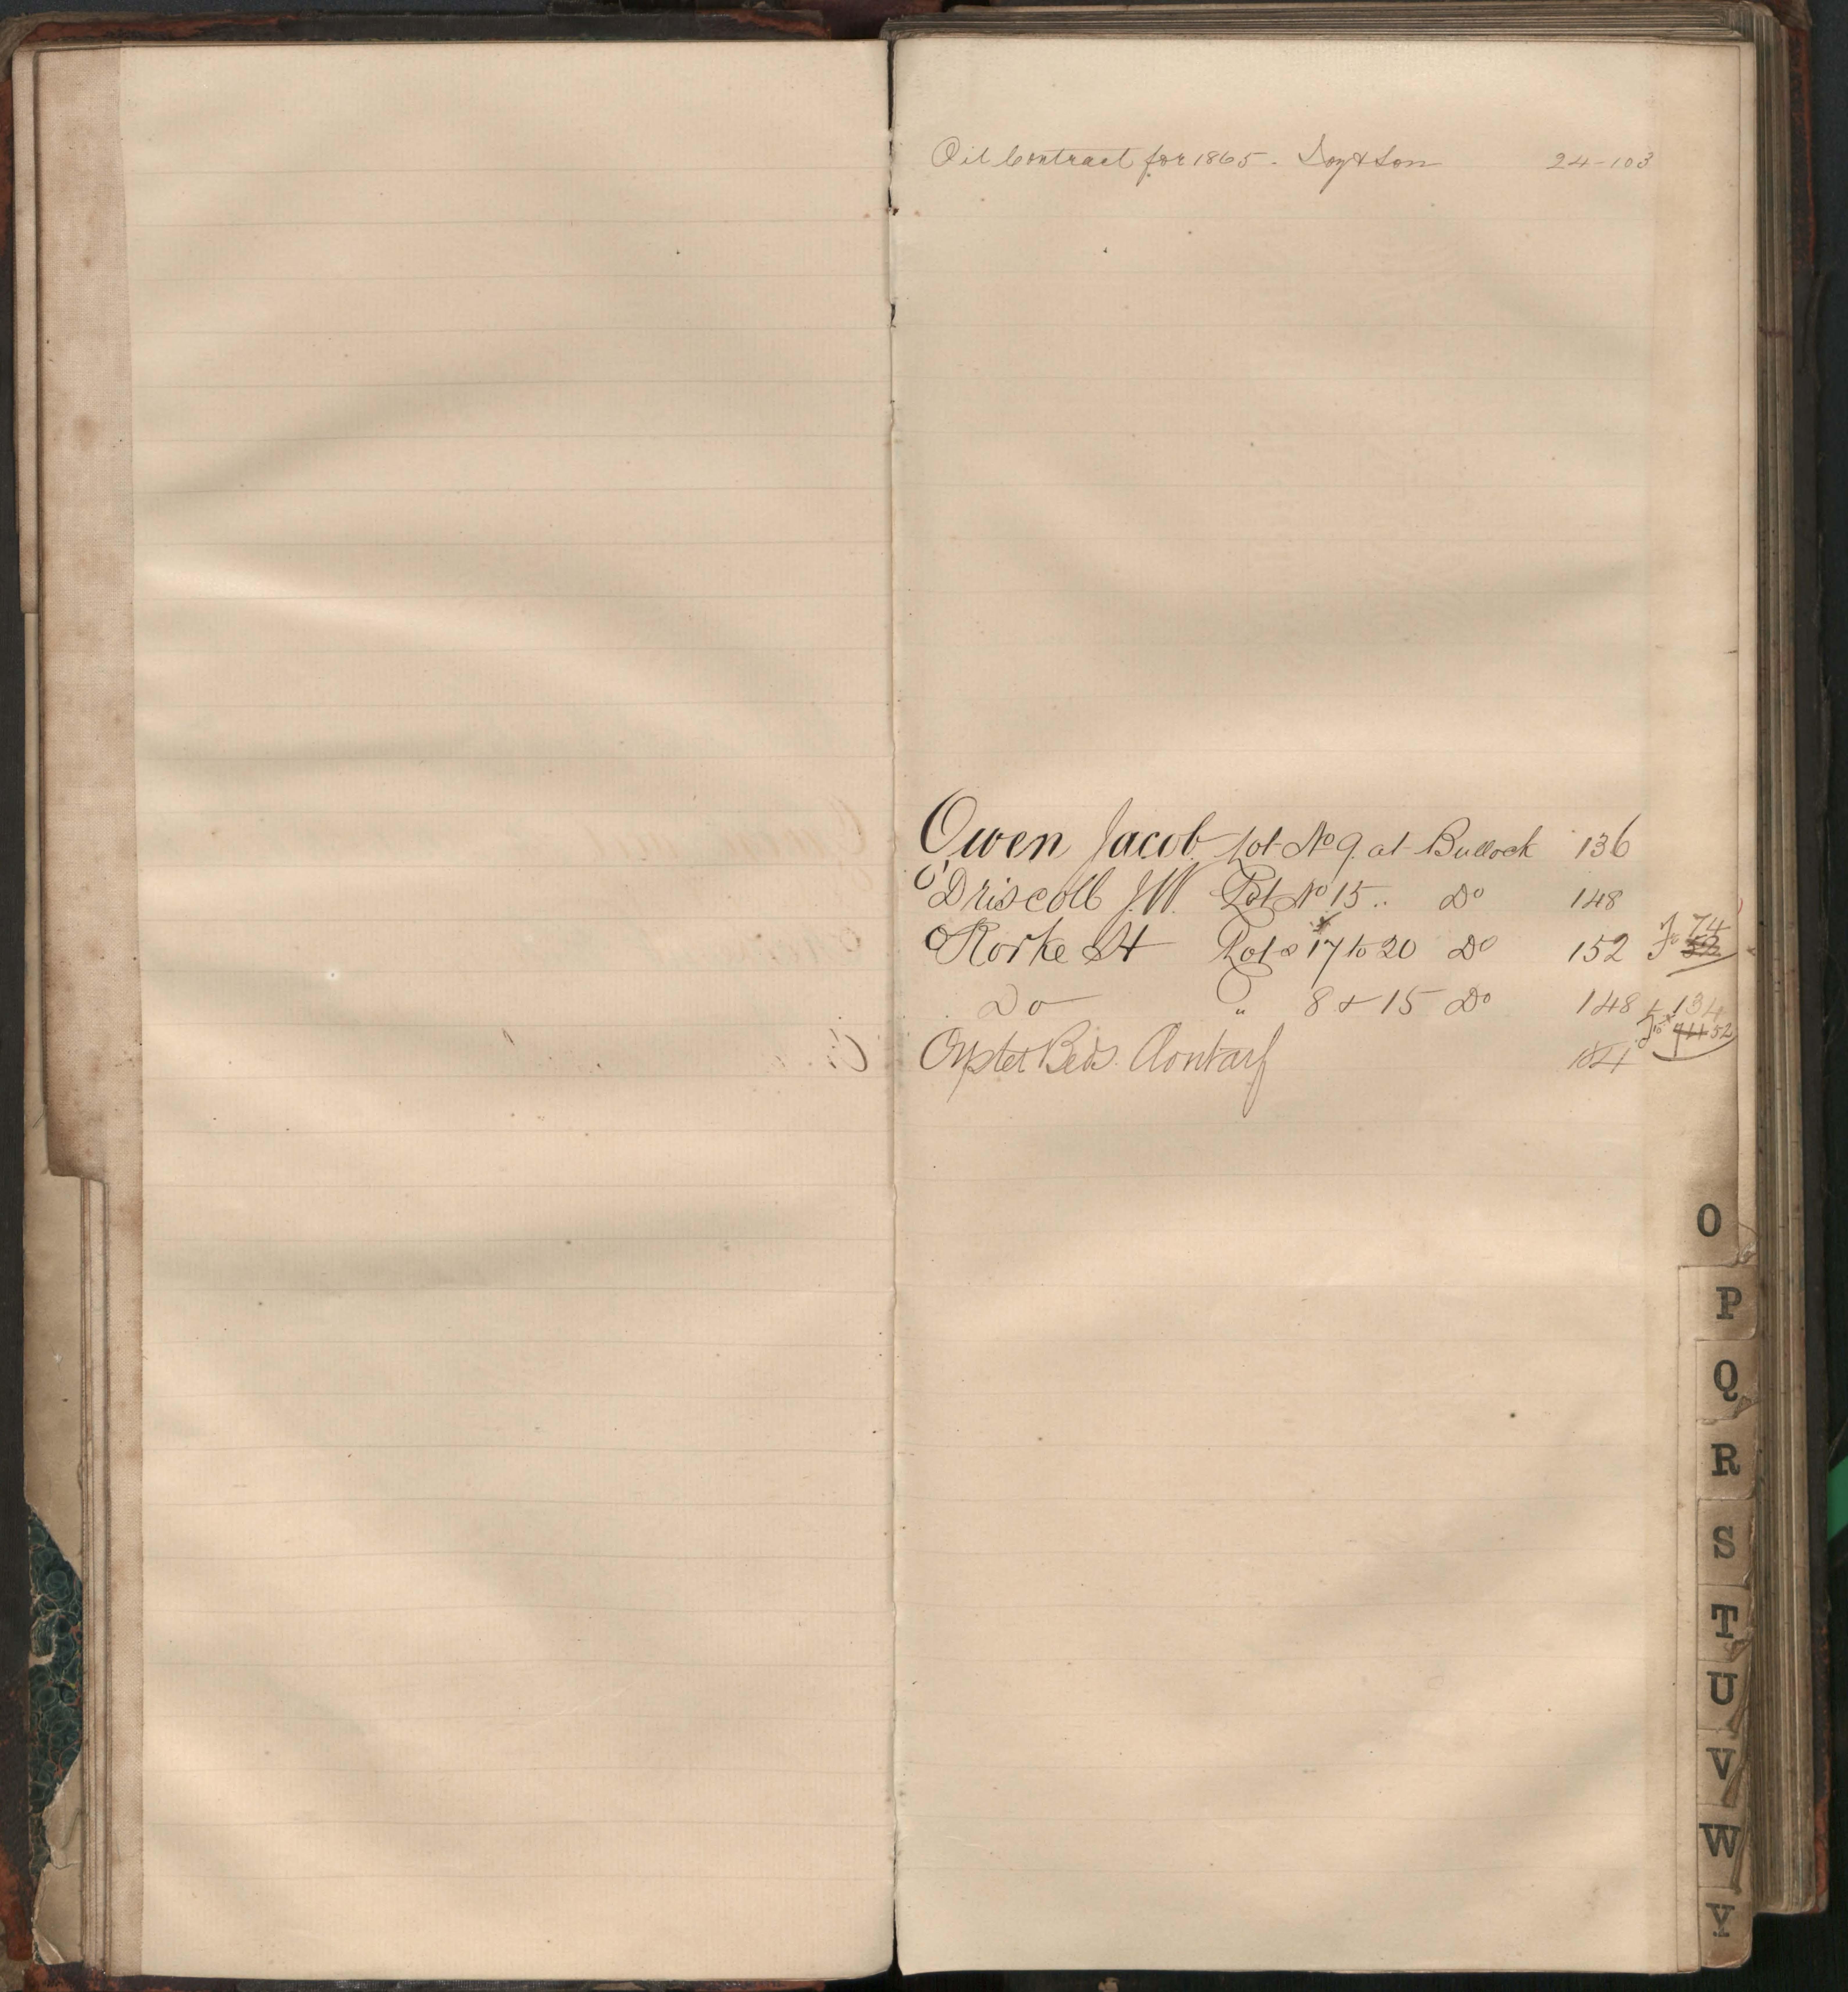 Oil Contract for 1865. & Son 24-103
Owen Jacob Lot No 9. at Bullock 136
O'Driscoll J.W. Lot No 15.. Do 148
O'Rorke H Lots 17 to 20 Do 152 Fo 74
Do " 8 & 15 Do 148 & 134
Fo 52
Oyster Beds. Clontarf 184
O
P
Q
R
S
T
U
V
W
Y